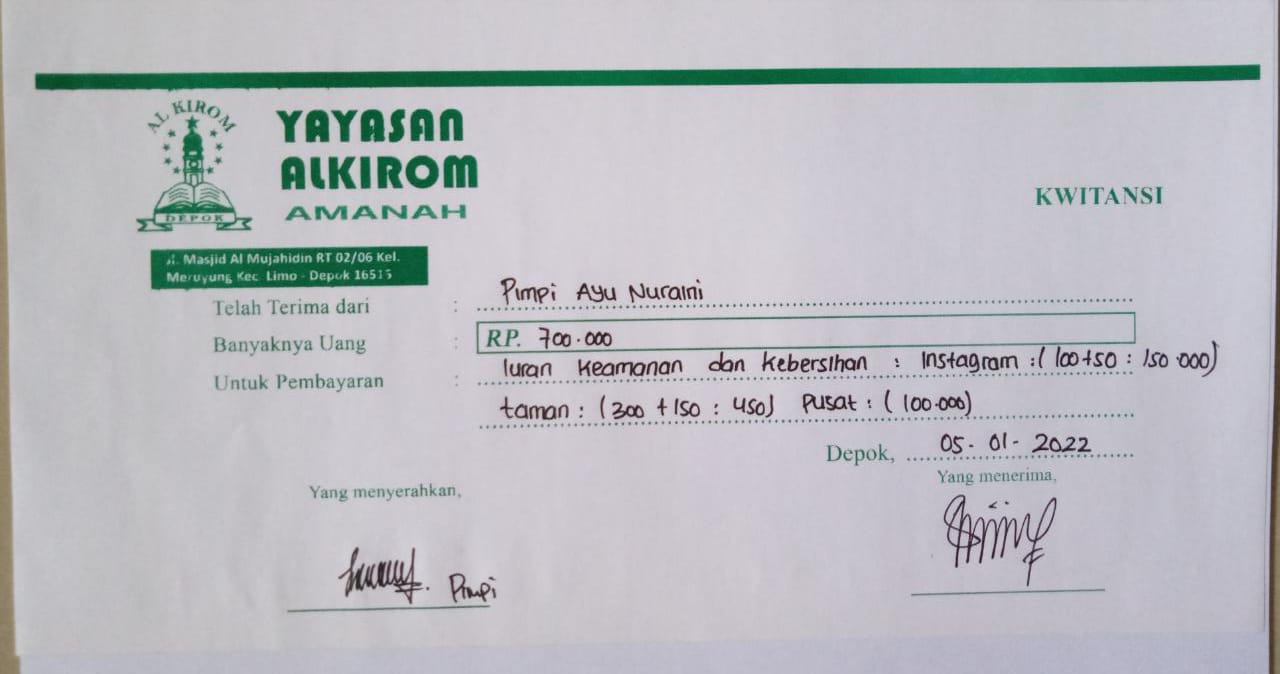 AL KIROM
DEPOK
YAYASAN
ALKIROM
AMANAH
KWITANSI
Jl. Masjid Al Mujahidin RT 02/06 Kel.
Meruyung Kec. Limo - Depok 16515
Telah Terima dari : Pimpi Ayu Nuraini
Banyaknya Uang : RP. 700.000
Untuk Pembayaran : Iuran Keamanan dan Kebersihan : Instagram : ( 100+50 : 150.000)
taman : (300 + 150 : 450) Pusat : ( 100.000)
Depok, 05-01-2022
Yang menyerahkan,
Yang menerima,
Pimpi